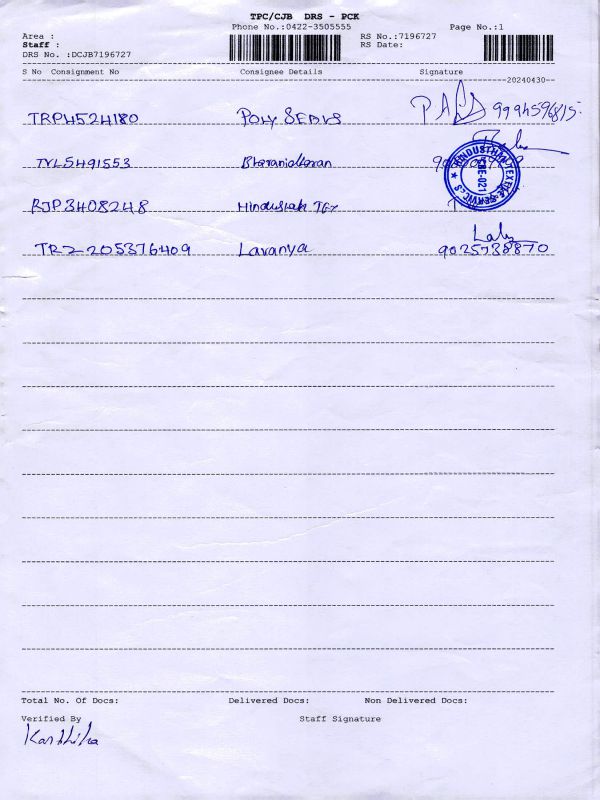 TPC/CJB DRS - PCK
Phone No.:0422-3505555 Page No.:1
Area : RS No.:7196727
Staff : RS Date:
DRS No. :DCJB7196727
S No Consignment No Consignee Details Signature
20240430
TRP4524180 POLY SEALS 9994596815
TVL5491553 Bharanidharan
HINDUSTHAN TEXTILE SERVICES
CBE-021
RJP3408248 Hindustah TEX
TRZ 205376409 Lavanya 9025738870
Total No. Of Docs: Delivered Docs: Non Delivered Docs:
Verified By Staff Signature
Karthika